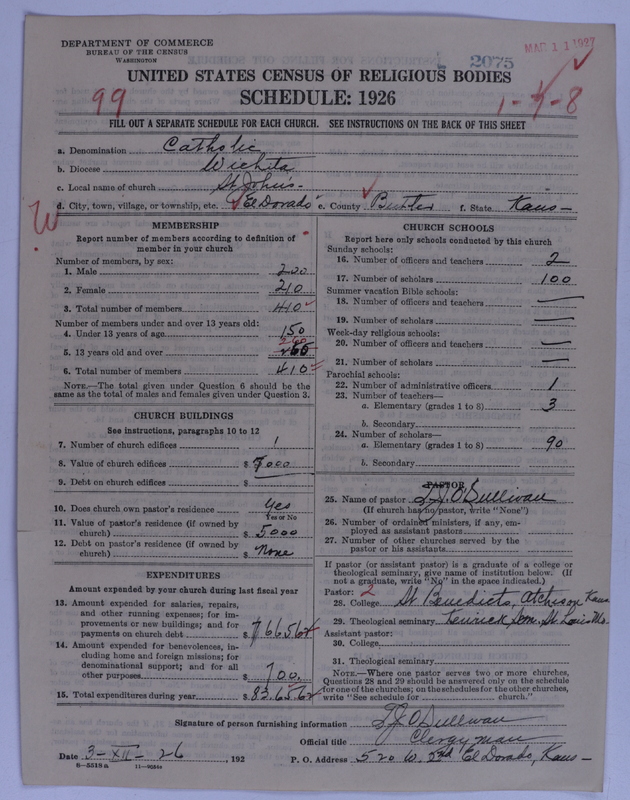 DEPARTMENT OF COMMERCE
BUREAU OF THE CENSUS
WASHINGTON
2075
MAR 11 1927
UNITED STATES CENSUS OF RELIGIOUS BODIES
SCHEDULE: 1926
99
1-7-8
FILL OUT A SEPARATE SCHEDULE FOR EACH CHURCH. SEE INSTRUCTIONS ON THE BACK OF THIS SHEET
a. Denomination Catholic
b. Diocese Wichita
c. Local name of church St. John's-
d. City, town, village, or township, etc. El Dorado e. County Butler f. State Kans-
W
MEMBERSHIP
Report number of members according to definition of member in your church
Number of members, by sex:
1. Male 200
2. Female 210
3. Total number of members 410
Number of members under and over 13 years old:
4. Under 13 years of age 150
260
5. 13 years old and over
6. Total number of members 410
NOTE.—The total given under Question 6 should be the
same as the total of males and females given under Question 3.
CHURCH BUILDINGS
See instructions, paragraphs 10 to 12
7. Number of church edifices 1
8. Value of church edifices $ 7000
9. Debt on church edifices $
10. Does church own pastor's residence yes
Yes or No
11. Value of pastor's residence (if owned by
church) $ 5000
12. Debt on pastor's residence (if owned by
church) $ None
EXPENDITURES
Amount expended by your church during last fiscal year
13. Amount expended for salaries, repairs,
and other running expenses; for im-
provements or new buildings; and for
payments on church debt $ 7665.62
14. Amount expended for benevolences, in-
cluding home and foreign missions; for
denominational support; and for all
other purposes $ 700.
15. Total expenditures during year $ 8365.62
CHURCH SCHOOLS
Report here only schools conducted by this church
Sunday schools:
16. Number of officers and teachers 2
17. Number of scholars 100
Summer vacation Bible schools:
18. Number of officers and teachers —
19. Number of scholars —
Week-day religious schools:
20. Number of officers and teachers —
21. Number of scholars —
Parochial schools:
22. Number of administrative officers 1
23. Number of teachers—
a. Elementary (grades 1 to 8) 3
b. Secondary
24. Number of scholars—
a. Elementary (grades 1 to 8) 90
b. Secondary
PASTOR
25. Name of pastor O'Sullivan
(If church has no pastor, write "None")
26. Number of ordained ministers, if any, em-
ployed as assistant pastors
27. Number of other churches served by the
pastor or his assistants
If pastor (or assistant pastor) is a graduate of a college or
theological seminary, give name of institution below. (If
not a graduate, write "No" in the space indicated.)
Pastor: 2
28. College St Benedicts, Atchison Kans
29. Theological seminary Kenrick Sem. St Louis Mo.
Assistant pastor:
30. College
31. Theological seminary
NOTE.—Where one pastor serves two or more churches,
Questions 28 and 29 should be answered only on the schedule
for one of the churches; on the schedules for the other churches,
write "See schedule for church."
Signature of person furnishing information O'Sullivan
Official title Clergyman
Date 3-XII-26, 192 P. O. Address 520 W. 2nd El Dorado, Kans-
8-5518a 11-9084